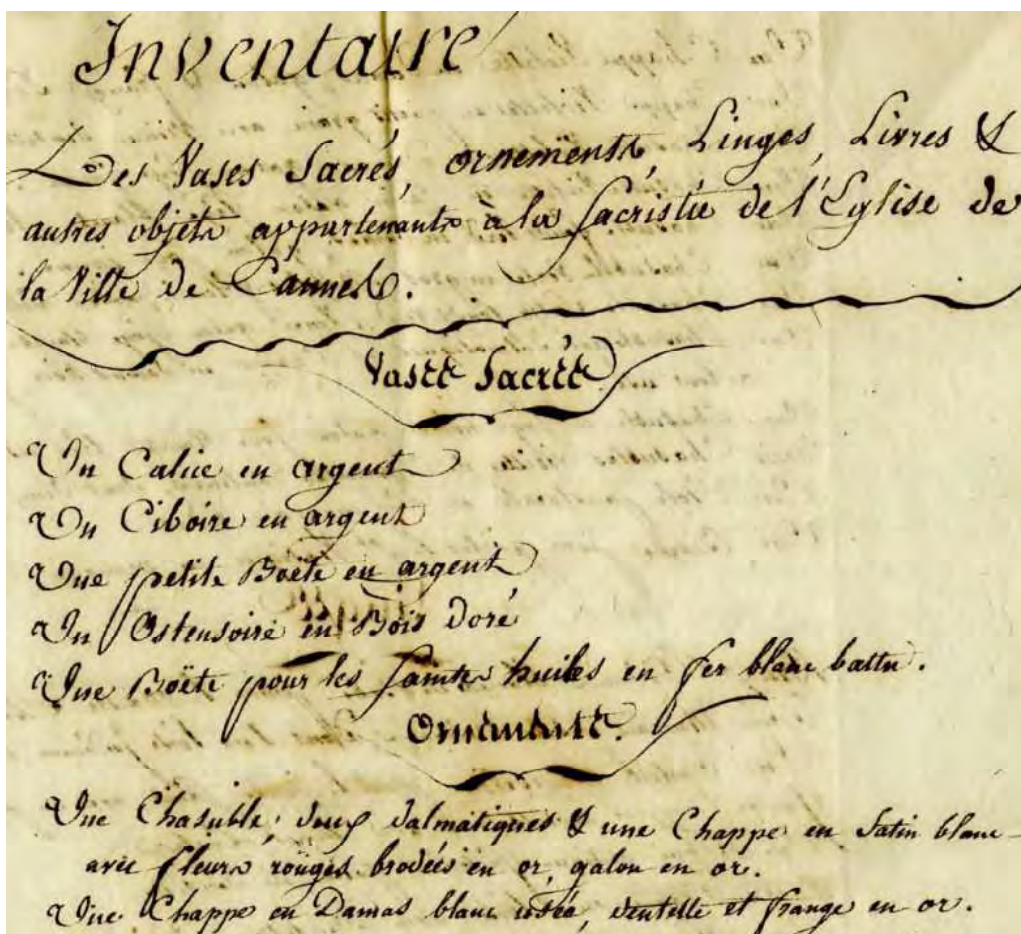 Inventaire
Des Vases Sacrés, ornements, Linges, Livres &
autres objets appartenants à la Sacristie de l'Eglise de
la Ville de Cannes.
Vases Sacrés
Un Calice en argent
Un Ciboire en argent
Une petite Boëte en argent
Un Ostensoire en Bois doré
Une Boëte pour les Saintes huiles en fer blanc battu.
Ornements.
Une Chasuble, deux dalmatiques & une Chappe en Satin blanc
avec fleurs rouges brodées en or, galon en or.
Une Chappe en Damas blanc usée, dentelle et frange en or.